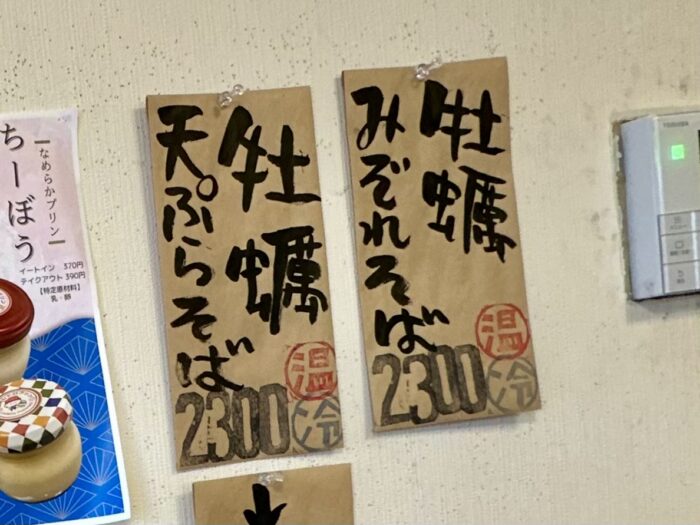 牡蠣
みぞれそば
2300
温
冷
牡蠣
天ぷらそば
2300
温
冷
なめらかプリン
ちーぼう
イートイン 370円
テイクアウト 390円
【特定原材料】
乳・卵
TOSHIBA